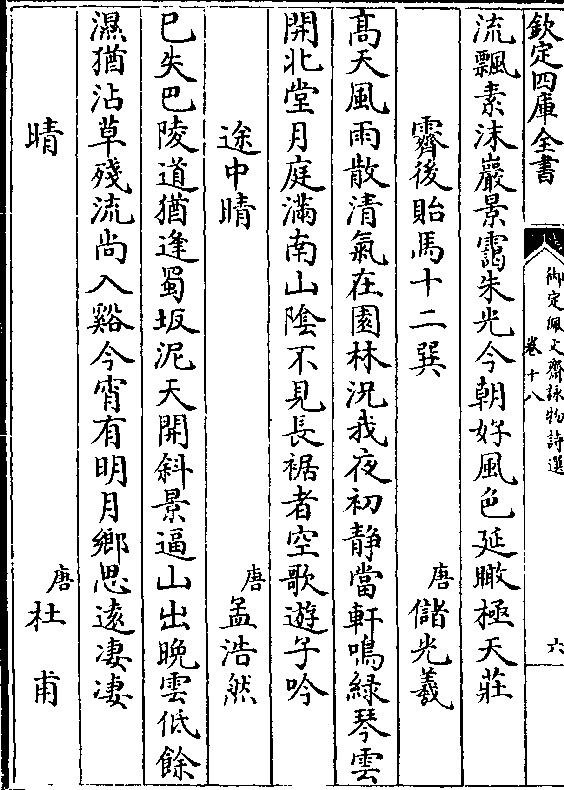 欽定四庫全書
御定佩文齋詠物詩選
卷十八
六
流飄素沫巖景靄朱光今朝好風色延瞰極天莊
霽後貽馬十二巽
唐儲光羲
髙天風雨散清氣在園林況我夜初静當軒鳴綠琴雲
開北堂月庭滿南山隂不見長裾者空歌遊子吟
途中晴
唐孟浩然
已失巴陵道猶逢蜀坂泥天開斜景遍山出晚雲低餘
濕猶沾草殘流尚入谿今宵有明月鄉思逺凄凄
晴
唐杜甫